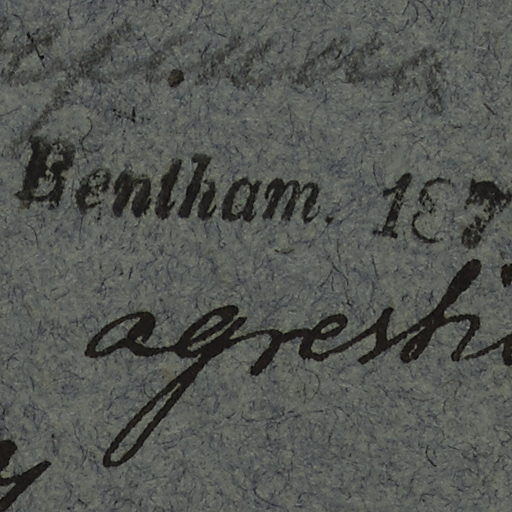 Bentham. 187
agresti
y